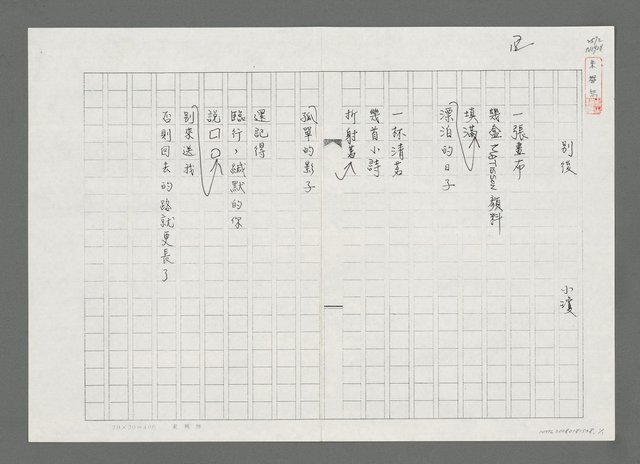 別後
小瓊
一張畫布
幾盒Matisse顏料
填滿
漂泊的日子
一杯清茗
幾首小詩
折射著
孤單的影子
還記得
臨行,緘默的你
說口口
別來送我
否則回去的路就更長了
20×20=400